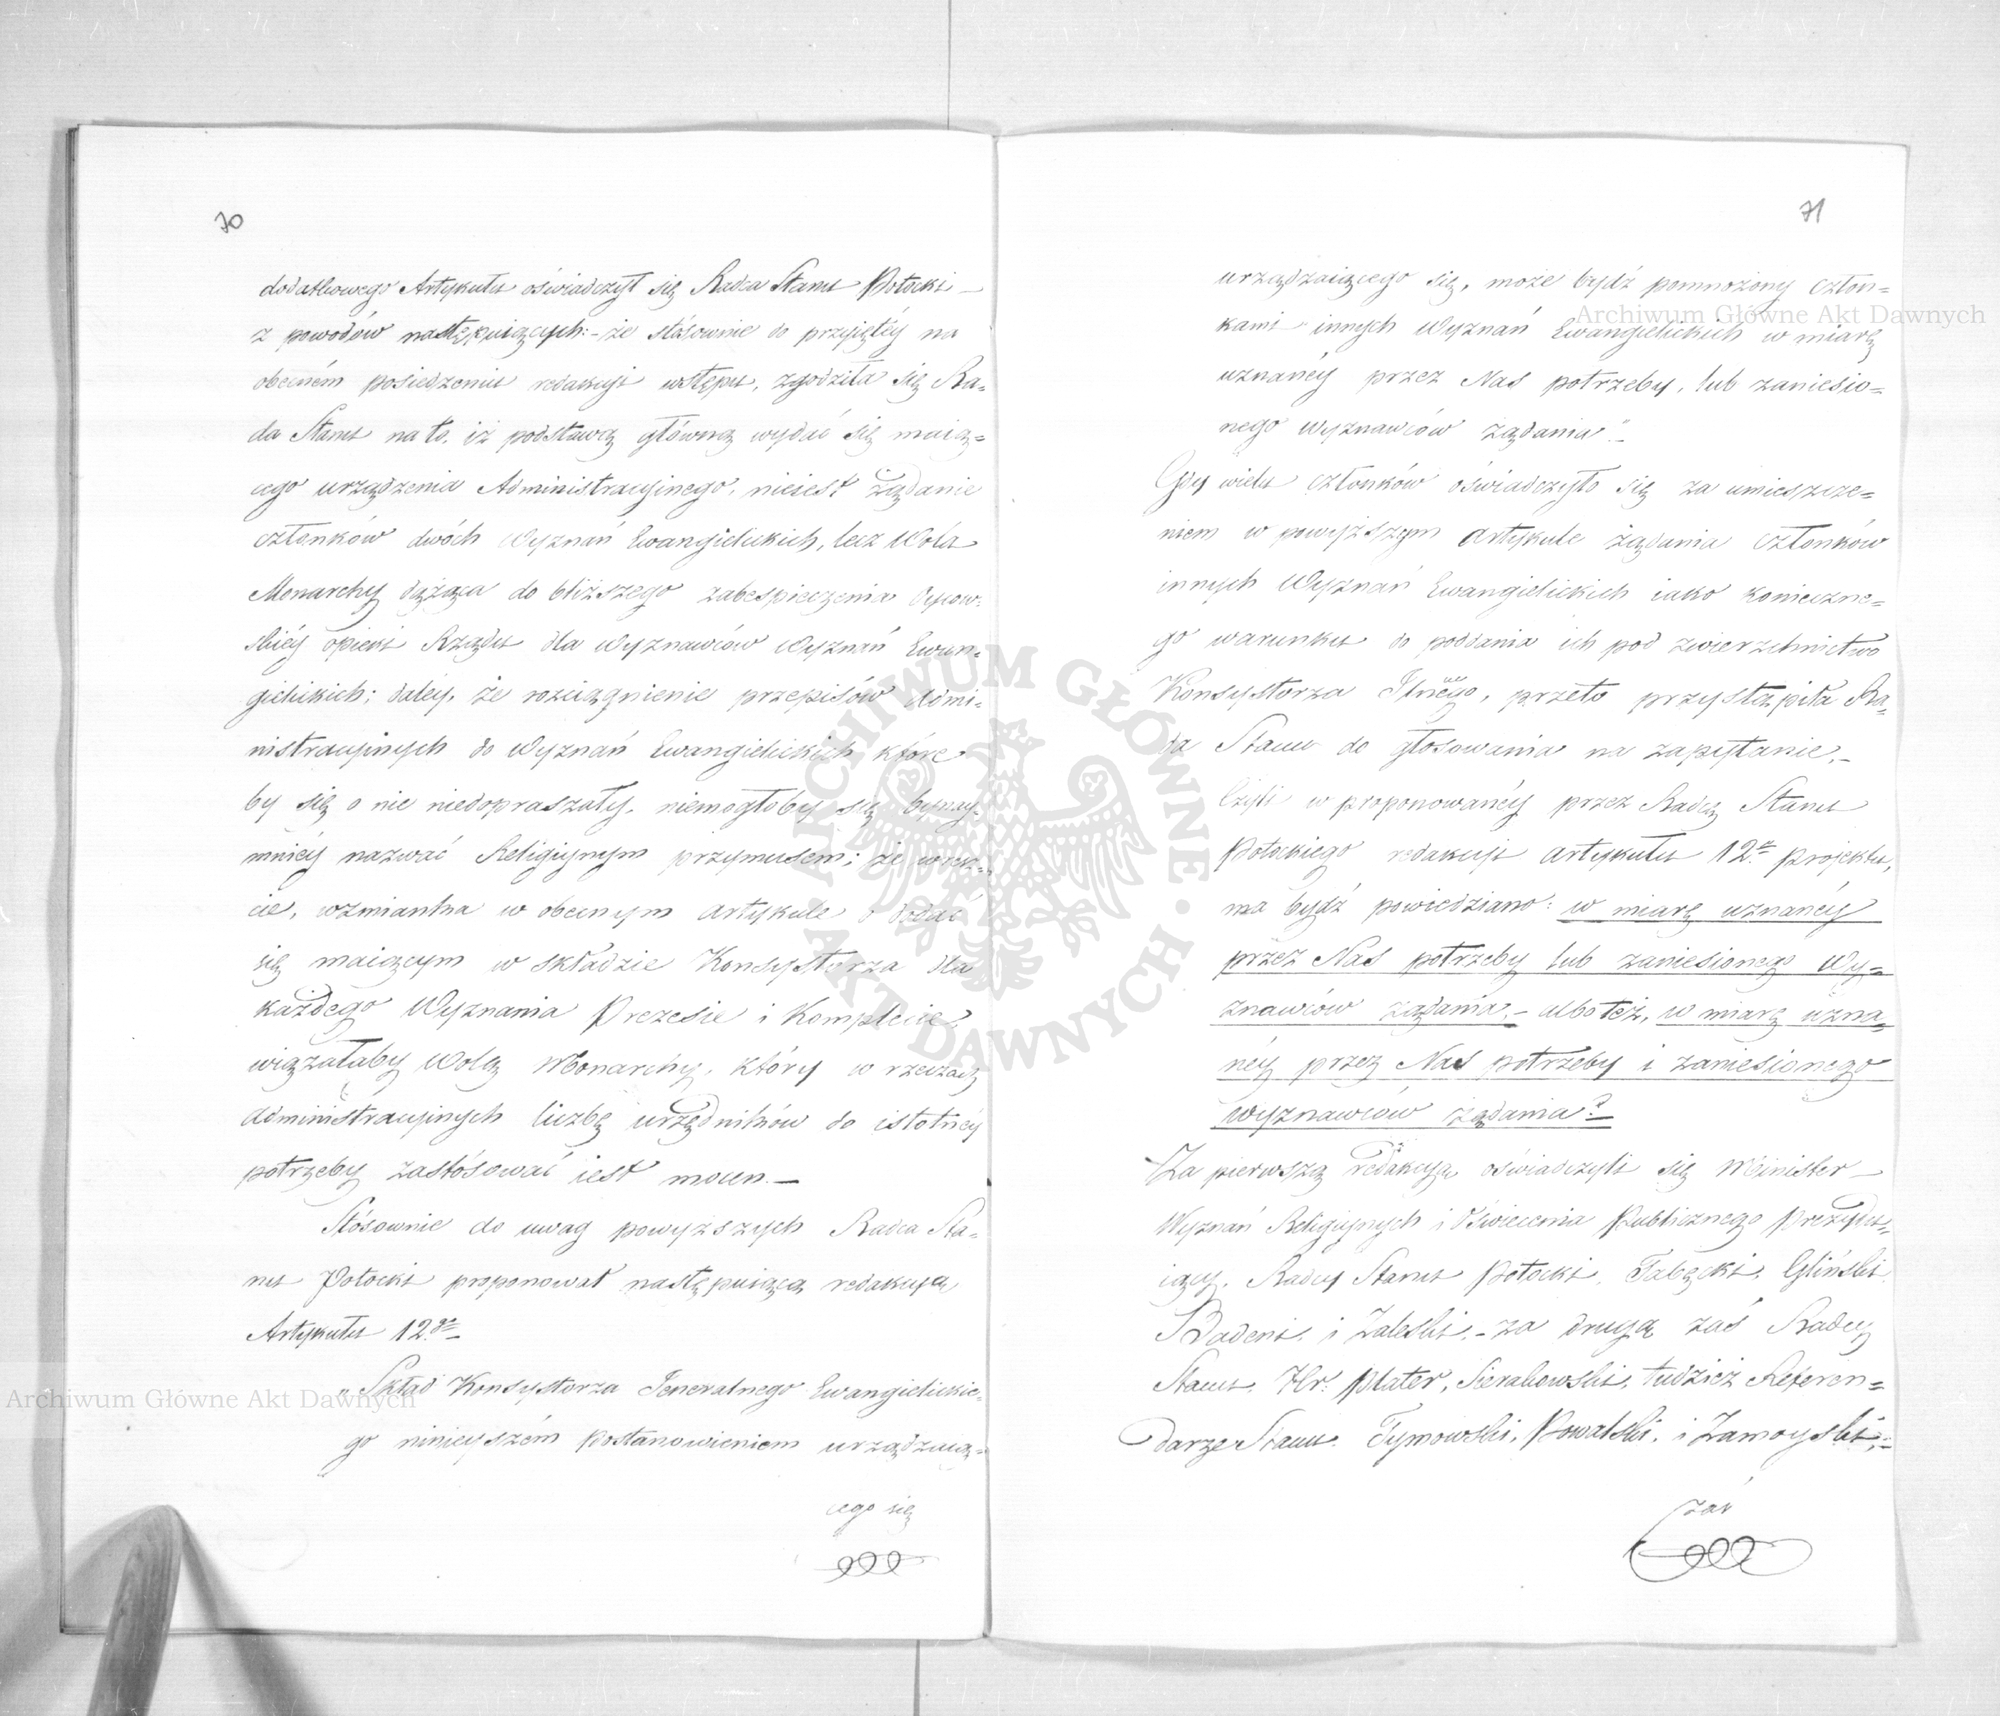 70
dodatkowego Artykułu oświadczył się Radca Stanu Potocki —
z powodów następuiących: – że stósownie do przyiętéy na
obecném posiedzeniu redakcyi wstępu, zgodziła się Ra-
da Stanu na to, iż podstawą główną wydać się maią-
cego urządzenia Administracyinego, nieiest żądanie
członków dwóch Wyznań Ewangielickich, lecz Wola
Monarchy dążąca do bliższego zabespieczenia Oycow-
skiéy opieki Rządu dla Wyznawców Wyznań Ewan-
gielickich; daléy, że rozciągnienie przepisów Admi-
nistracyinych do Wyznań Ewangielickich które
by się o nie niedopraszały, niemogłoby się bynay-
mniéy nazwać Religiynym przymusem; że wresz-
cie, wzmianka w obecnym artykule o dodać
się maiącym w składzie Konsystorza dla
każdego Wyznania Prezesie i Komplecie,
wiązałaby Wolą Monarchy, który w rzeczach
Administracyinych liczbę urzędników do istotnéy
potrzeby zastósować iest mocen. —
Stósownie do uwag powyższych Radca Sta-
nu Potocki proponował następuiącą redakcyą
Artykułu 12.go
„Skład Konsystorza Jeneralnego Ewangielickie-
go ninieyszém Postanowieniem urządzaią-
cego się
71
urządzaiącego się, może bydź pomnożony człon-
kami innych Wyznań Ewangielickich w miarę
uznanéy przez Nas potrzeby, lub zaniesio-
nego Wyznawców żądania". –
Gdy wielu członków oświadczyło się za umieszcze-
niem w powyższym artykule żądania Członków
innych Wyznań Ewangielickich iako konieczne-
go warunku do poddania ich pod zwierzchnictwo
Konsystorza Jlnego, przeto przystąpiła Ra-
da Stanu do głosowania na zapytanie, –
Czyli w proponowanéy przez Radcę Stanu
Potockiego redakcyi artykułu 12.o projektu,
ma bydź powiedziano: w miarę uznanéy
przez Nas potrzeby lub zaniesionego Wy-
znawców żądania, – albo też, w miarę uzna-
néy przez Nas potrzeby i zaniesionego
Wyznawców żądania? –
Za pierwszą redakcyą oświadczyli się Minister —
Wyznań Religiynych i Oświecenia Publicznego Prezydu-
iący, Radcy Stanu Potocki, Tabęcki, Gliński,
Badeni, i Zaleski, – za drugą zaś Radcy
Stanu, Hr: Plater, Sierakowski, tudzież Referen-
darze Stanu, Tymowski, Kowalski, i Zamoyski, –
zaś
Archiwum Główne Akt Dawnych
Archiwum Główne Akt Dawnych
ARCHIWUM GŁÓWNE · AKT DAWNYCH ·